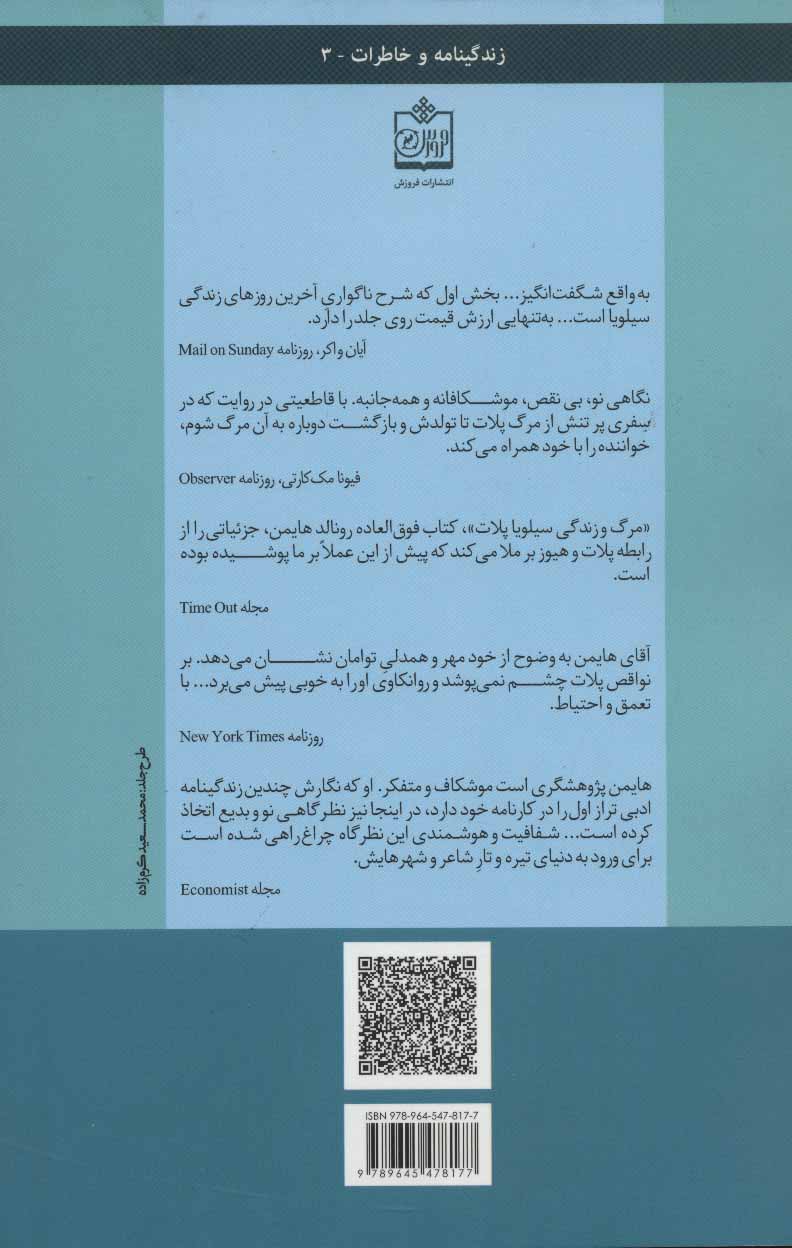 زندگینامه و خاطرات - ۳
فروزش
انتشارات فروزش
به واقع شگفت‌انگیز... بخش اول که شرح ناگواری آخرین روزهای زندگی
سیلویا است... به‌تنهایی ارزش قیمت روی جلد را دارد.
آیان واکر، روزنامه Mail on Sunday
نگاهی نو، بی نقص، موشکافانه و همه‌جانبه. با قاطعیتی در روایت که در
سفری پر تنش از مرگ پلات تا تولدش و بازگشت دوباره به آن مرگ شوم،
خواننده را با خود همراه می‌کند.
فیونا مک‌کارتی، روزنامه Observer
«مرگ و زندگی سیلویا پلات»، کتاب فوق‌العاده رونالد هایمن، جزئیاتی را از
رابطه پلات و هیوز بر ملا می‌کند که پیش از این عملاً بر ما پوشیده بوده
است.
مجله Time Out
آقای هایمن به وضوح از خود مهر و همدلیِ توامان نشان می‌دهد. بر
نواقص پلات چشم نمی‌پوشد و روانکاوی او را به خوبی پیش می‌برد... با
تعمق و احتیاط.
روزنامه New York Times
هایمن پژوهشگری است موشکاف و متفکر. او که نگارش چندین زندگینامه
ادبی تراز اول را در کارنامه خود دارد، در اینجا نیز نظرگاهی نو و بدیع اتخاذ
کرده است... شفافیت و هوشمندی این نظرگاه چراغ راهی شده است
برای ورود به دنیای تیره و تارِ شاعر و شهرهایش.
مجله Economist
طرح جلد: محمدسعید کرم‌زاده
ISBN 978-964-547-817-7
9 789645 478177